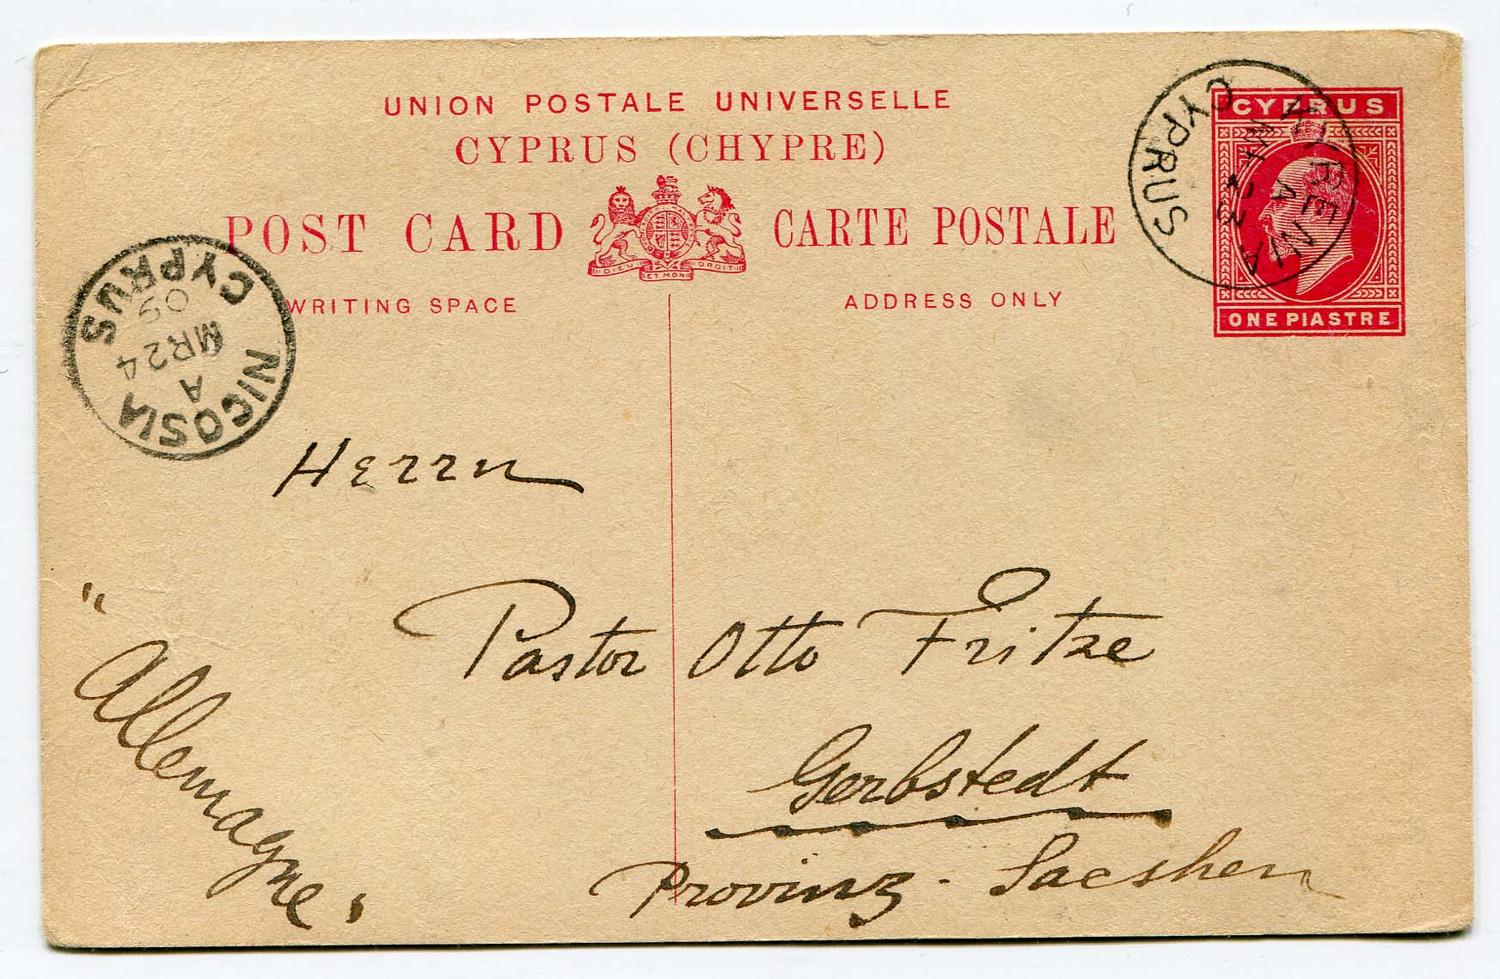 UNION POSTALE UNIVERSELLE
CYPRUS (CHYPRE)
POST CARD CARTE POSTALE
DIEU ET MON DROIT
WRITING SPACE
ADDRESS ONLY
CYPRUS
ONE PIASTRE
KYRENIA
A
23
CYPRUS
NICOSIA
A
MR 24
09
CYPRUS
Herrn
Pastor Otto Fritze
Gerbstedt
Provinz - Sacshen
"Allemagne"